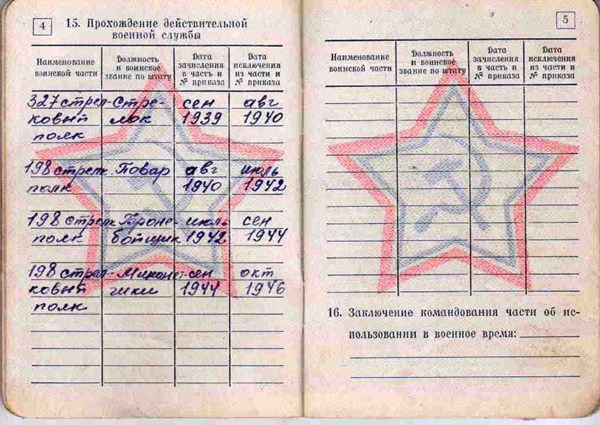 4
15. Прохождение действительной
военной службы
Наименование воинской части
Должность и воинское звание по штату
Дата зачисления в часть и № приказа
Дата исключения из части и № приказа
327 стрел- Стре- сен авг
ковый лок 1939 1940
полк
198 стрелк Повар авг июль
полк 1940 1942
198 стрелк Броне- июль сен
полк бойщик 1942 1944
198 стрел- сен окт
ковый 1944 1946
полк
5
Наименование воинской части
Должность и воинское звание по штату
Дата зачисления в часть и № приказа
Дата исключения из части и № приказа
16. Заключение командования части об ис-
пользовании в военное время: